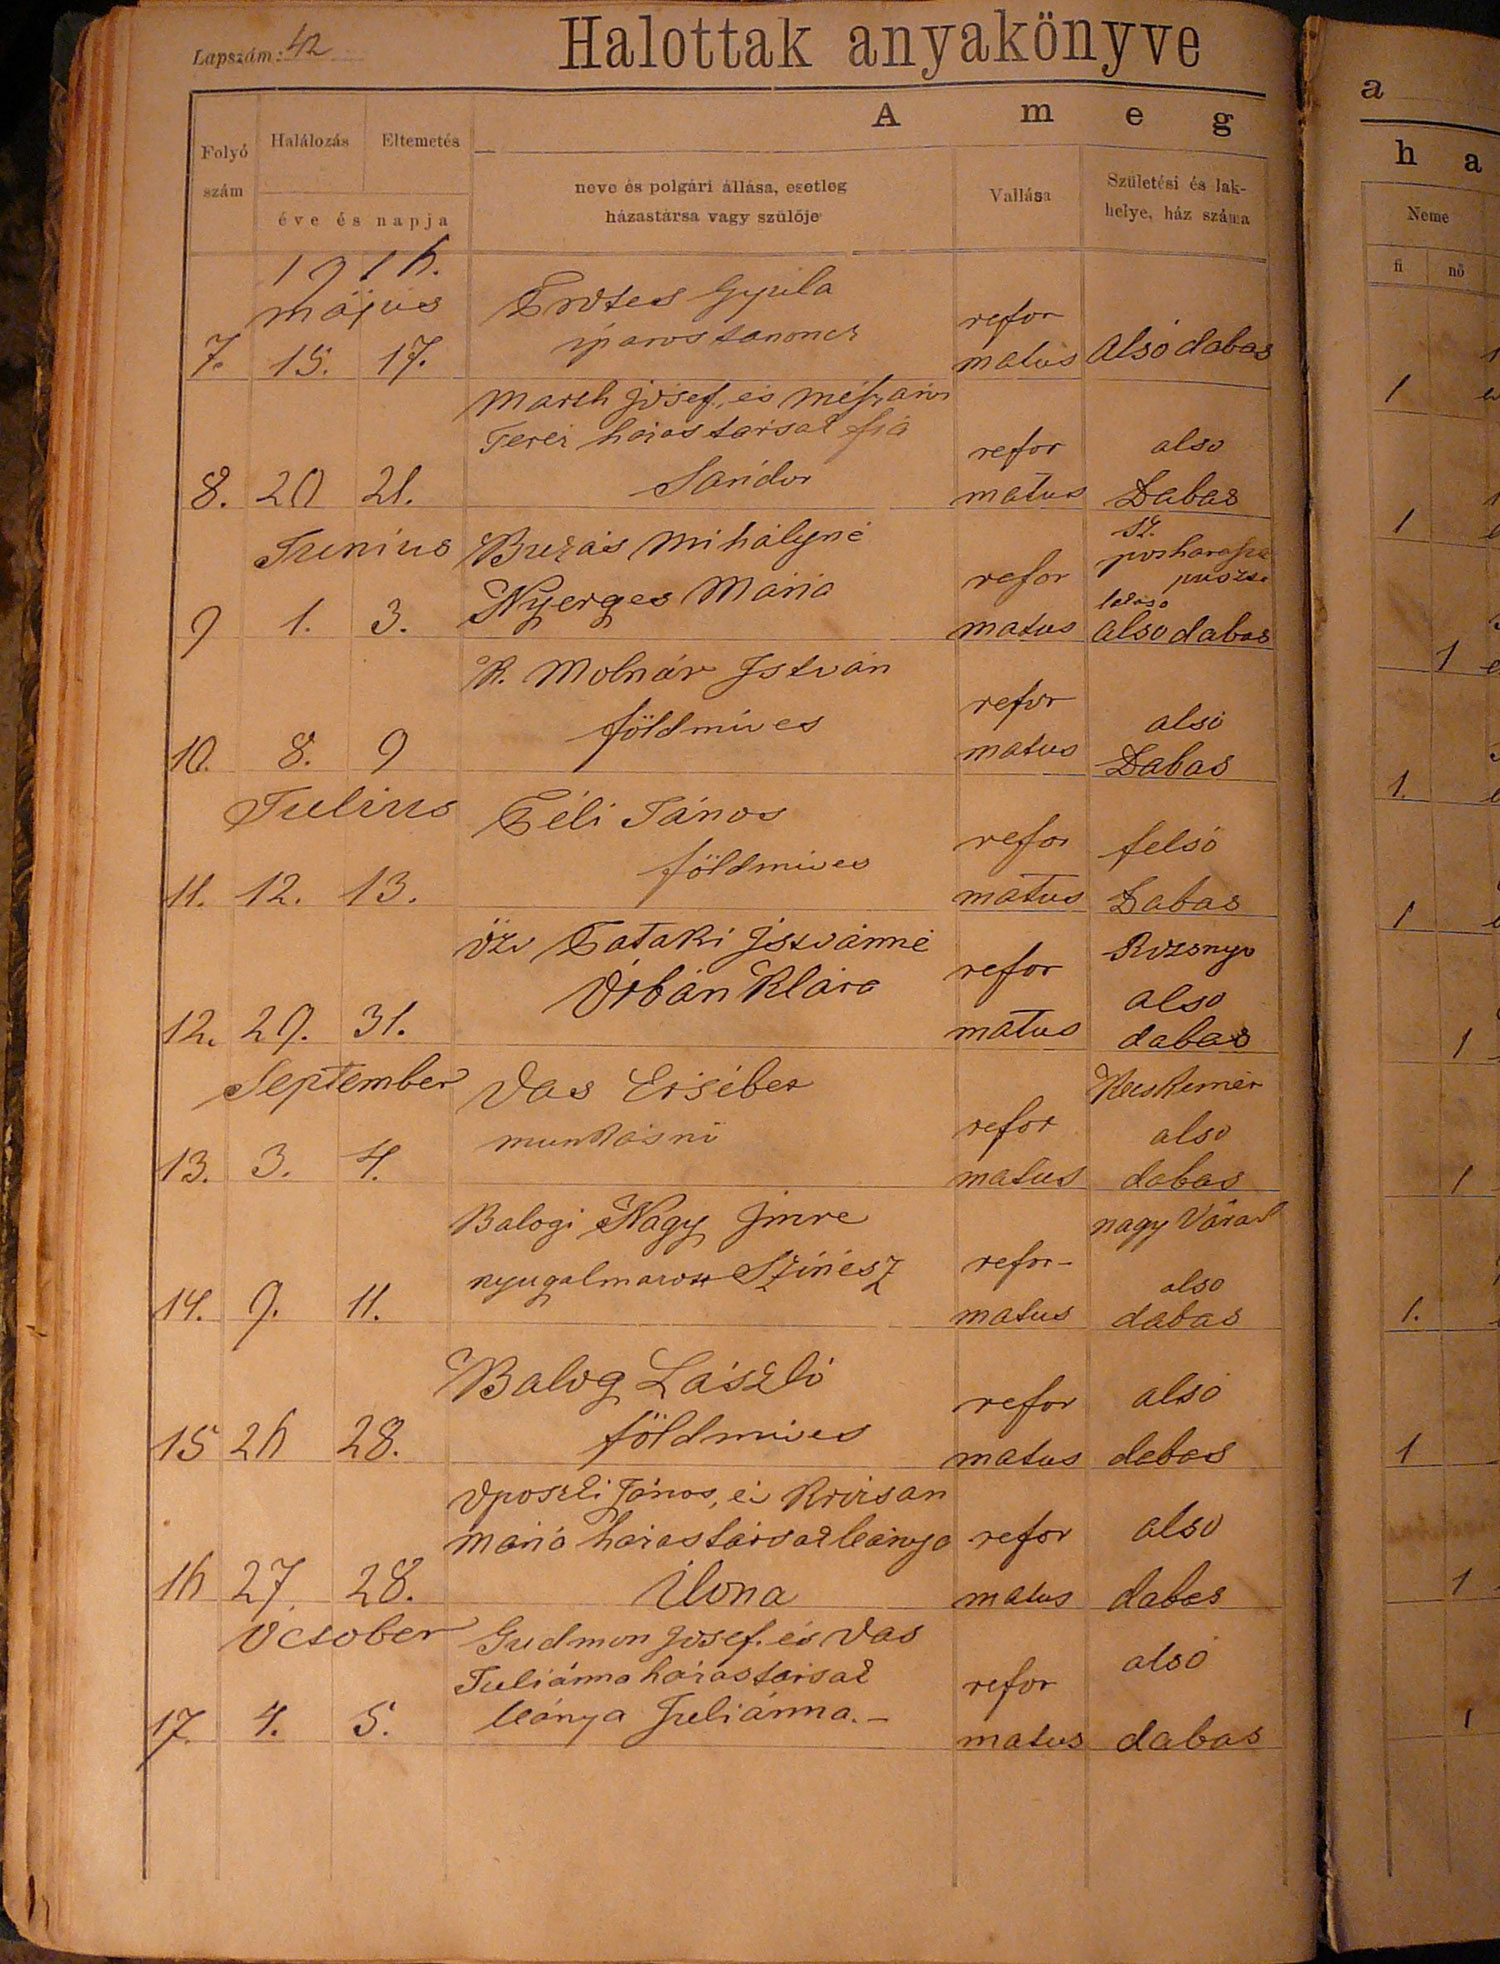 Lapszám: 42
Halottak anyakönyve
A m e g
Folyó szám
Halálozás
Eltemetés
éve és napja
neve és polgári állása, esetleg
házastársa vagy szülője
Vallása
Születési és lak-
helye, ház száma
1916.
május
7. 15. 17.
Gyula
iparostanoncz
refor
matus
Alsó dabas
József, és
Teréz házastársak fia
Sándor
8. 20 21.
refor
matus
also
Dabas
Junius
9 1. 3.
Buzás Mihályné
Nyerges Mária
refor
matus
sz.
alsodabas
10. 8. 9
K. Molnár István
földmives
refor
matus
alsó
Dabas
Julius
11. 12. 13.
János
földmives
refor
matus
felső
Dabas
12. 29. 31.
özv Pataki Istvánné
Urbán Klára
refor
matus
also
dabas
September
13. 3. 4.
Vas Ersébet
munkásnő
refor
matus
Kecskemét
also
dabas
14. 9. 11.
Balogi Nagy Imre
Színész
refor-
matus
nagy Várad
also
dabas
15 26 28.
Balog László
földmives
refor
matus
alsó
dabas
16 27. 28.
János, és
Mária házastársak leánya
Ilona
refor
matus
also
dabas
October
17. 4. 5.
Gudmon József. és Vas
Juliánna házastársak
leánya Juliánna.-
refor
matus
alsó
dabas
a
h a
Neme
fi nő
1
1
1
1.
1
1
1
1.
1
1
1